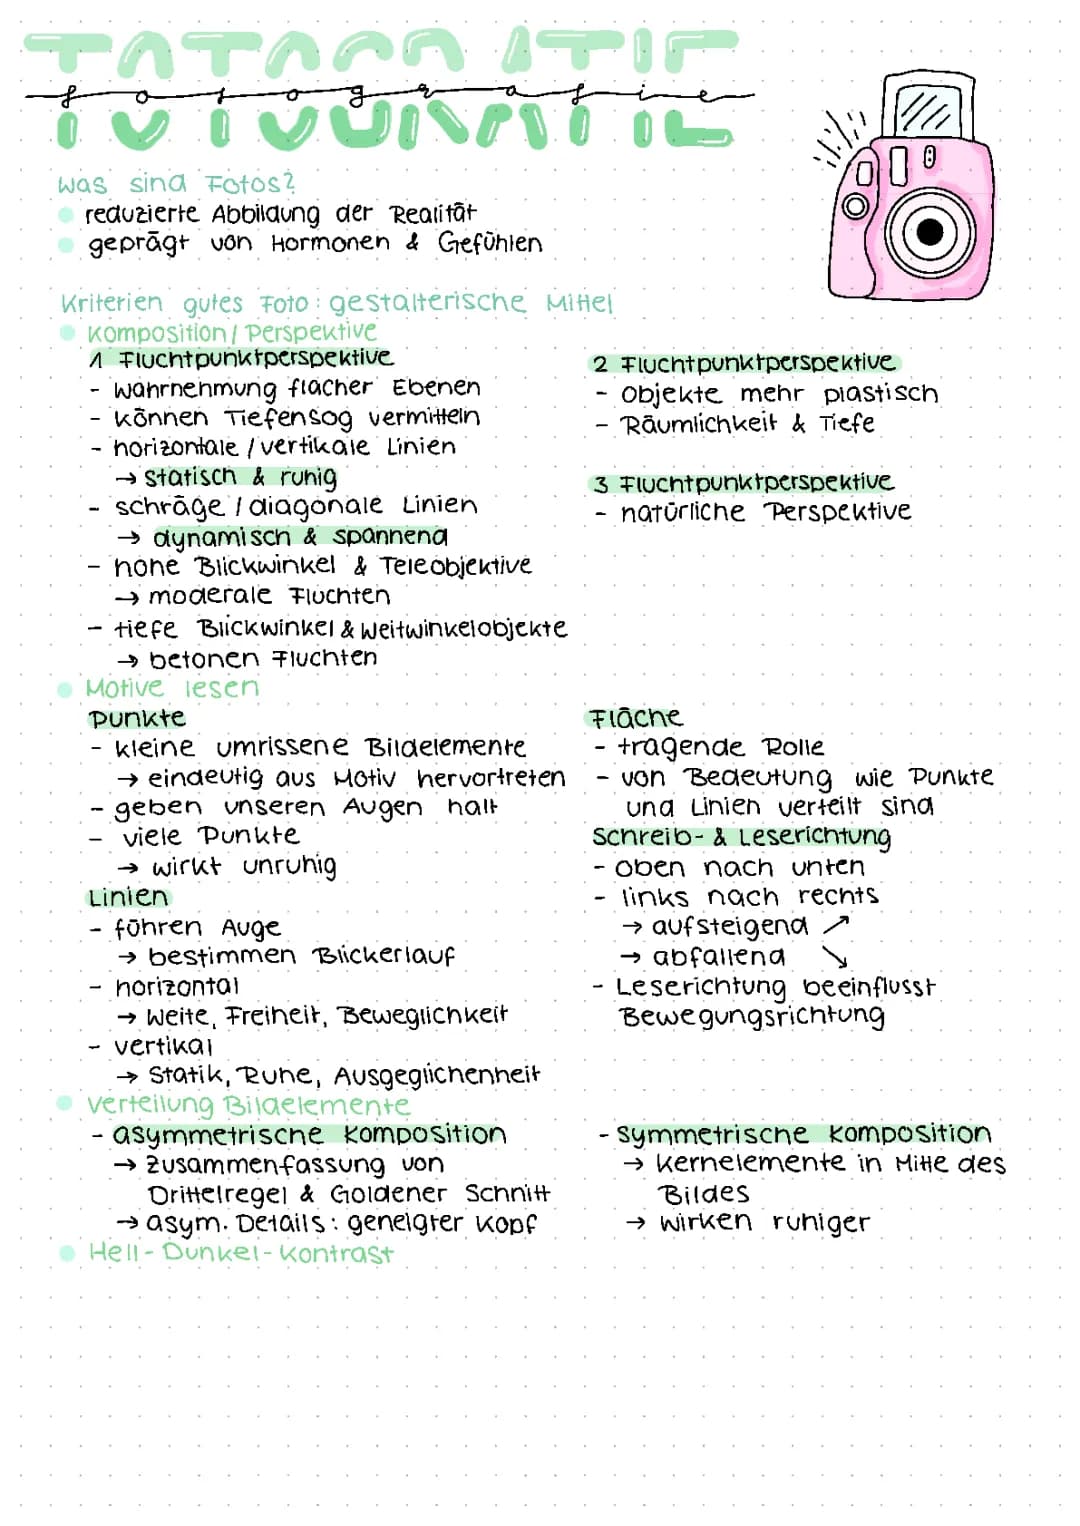 FOTOGRAFIE
fotografie
Was sind Fotos?
reduzierte Abbildung der Realität
geprägt von Hormonen & Gefühlen
Kriterien gutes Foto: gestalterische Mittel
Komposition / Perspektive
1 Fluchtpunktperspektive
- Wahrnehmung flacher Ebenen
- können Tiefensog vermitteln
- horizontale / vertikale Linien
→ statisch & ruhig
- schräge / diagonale Linien
→ dynamisch & spannend
- hohe Blickwinkel & Teleobjektive
→ moderale Fluchten
- tiefe Blickwinkel & Weitwinkelobjekte
→ betonen Fluchten
2 Fluchtpunktperspektive
- Objekte mehr plastisch
- Räumlichkeit & Tiefe
3 Fluchtpunktperspektive
- natürliche Perspektive
Motive lesen
Punkte
- kleine umrissene Bildelemente
→ eindeutig aus Motiv hervortreten
- geben unseren Augen halt
- viele Punkte
→ wirkt unruhig
Linien
- führen Auge
→ bestimmen Blickerlauf
- horizontal
→ Weite, Freiheit, Beweglichkeit
- vertikal
→ Statik, Ruhe, Ausgeglichenheit
Fläche
- tragende Rolle
- von Bedeutung wie Punkte
und Linien verteilt sind
Schreib- & Leserichtung
- oben nach unten
- links nach rechts
→ aufsteigend ↗
→ abfallend ↘
- Leserichtung beeinflusst
Bewegungsrichtung
Verteilung Bildelemente
- asymmetrische Komposition
→ Zusammenfassung von
Drittelregel & Goldener Schnitt
→ asym. Details: geneigter Kopf
- Symmetrische Komposition
→ Kernelemente in Mitte des
Bildes
→ wirken ruhiger
Hell-Dunkel-Kontrast